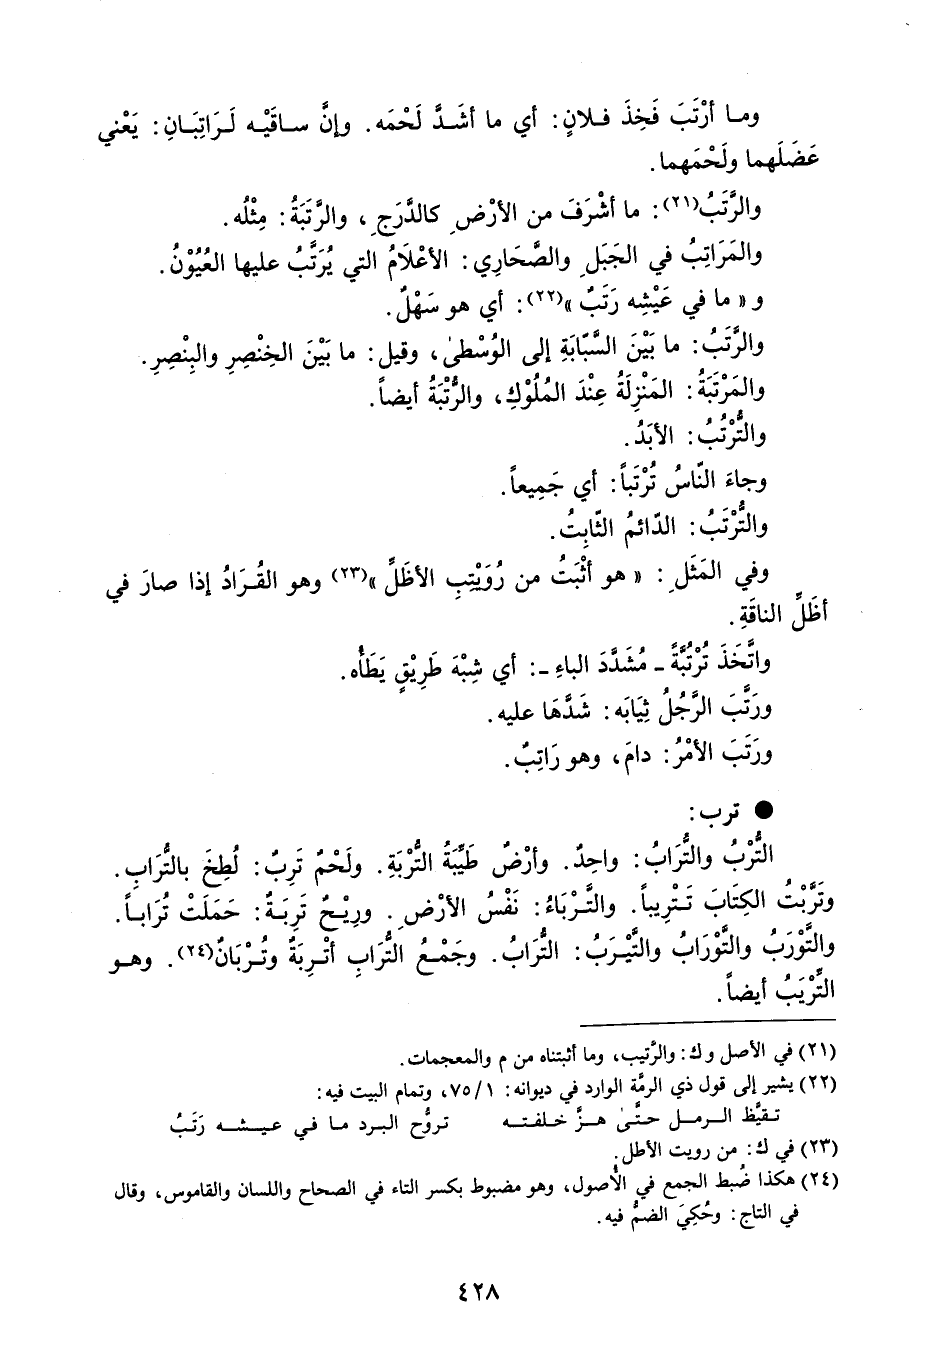 وما أرْتَبَ فَخِذَ فلانٍ: أي ما أشَدَّ لَحْمَه. وإنَّ ساقَيْه لَرَاتِبَانِ: يَعْني
عَضَلَهما ولَحْمَهما.
والرَّتَبُ(٢١): ما أشْرَفَ من الأرْضِ كالدَّرَجِ، والرَّتَبَةُ: مِثْلُه.
والمَرَاتِبُ في الجَبَلِ والصَّحَارِي: الأعْلَامُ التي يُرَتَّبُ عليها العُيُوْنُ.
و « ما في عَيْشِه رَتَبٌ »(٢٢): أي هو سَهْلٌ.
والرَّتَبُ: ما بَيْنَ السَّبّابَةِ إلى الوُسْطىٰ، وقيل: ما بَيْنَ الخِنْصِرِ والبِنْصِرِ.
والمَرْتَبَةُ: المَنْزِلَةُ عِنْدَ المُلُوْكِ، والرُّتْبَةُ أيضاً.
والتُّرْتُبُ: الأبَدُ.
وجاءَ النّاسُ تُرْتَباً: أي جَمِيعاً.
والتُّرْتَبُ: الدّائمُ الثّابِتُ.
وفي المَثَلِ: « هو أثْبَتُ من رُوَيْتِبِ الأظَلِّ »(٢٣) وهو القُرَادُ إذا صارَ في
أظَلِّ الناقَةِ.
واتَّخَذَ تُرْتُبَّةً ـ مُشَدَّدَ الباءِ ـ: أي شِبْهَ طَرِيْقٍ يَطَأُه.
ورَتَّبَ الرَّجُلُ ثِيَابَه: شَدَّهَا عليه.
ورَتَبَ الأمْرُ: دامَ، وهو رَاتِبٌ.
● ترب:
التُّرْبُ والتُّرَابُ: واحِدٌ. وأرْضٌ طَيِّبَةُ التُّرْبَةِ. ولَحْمٌ تَرِبٌ: لُطِخَ بالتُّرَابِ.
وتَرَّبْتُ الكِتَابَ تَتْرِيباً. والتَّرْبَاءُ: نَفْسُ الأرْضِ. ورِيْحٌ تَرِبَةٌ: حَمَلَتْ تُرَاباً.
والتَّوْرَبُ والتَّوْرَابُ والتَّيْرَبُ: التُّرَابُ. وجَمْعُ التُّرَابِ أتْرِبَةٌ وتُرْبَانٌ(٢٤). وهو
التِّرْيَبُ أيضاً.
(٢١) في الأصل وك: والرَّتيب، وما أثبتناه من م والمعجمات.
(٢٢) يشير إلى قول ذي الرمّة الوارد في ديوانه: ٧٥/١، وتمام البيت فيه:
تقيَّظ الرمل حتّىٰ هزَّ خلفته تروُّح البرد ما في عيشه رَتَبُ
(٢٣) في ك: من رويت الأطل.
(٢٤) هكذا ضُبط الجمع في الأُصول، وهو مضبوط بكسر التاء في الصحاح واللسان والقاموس، وقال
في التاج: وحُكِيَ الضمُّ فيه.
٤٢٨